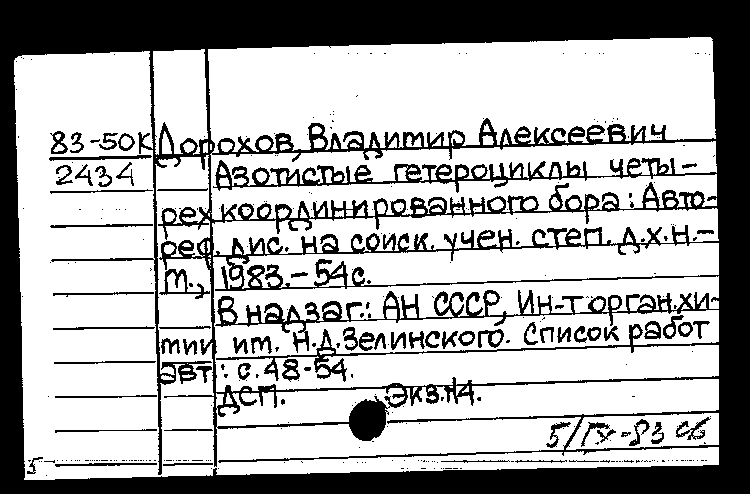 83-50К Дорохов, Владимир Алексеевич
2434 Азотистые гетероциклы четы-
рехкоординированного бора: Авто-
реф. дис. на соиск. учен. степ. д.х.н.-
М., 1983.-54с.
В надзаг.: АН СССР, Ин-т орган.хи-
мии им. Н.Д.Зелинского. Список работ
авт.: с.48-54.
ДСП. Экз.№4.
5/IX-83 сб
5